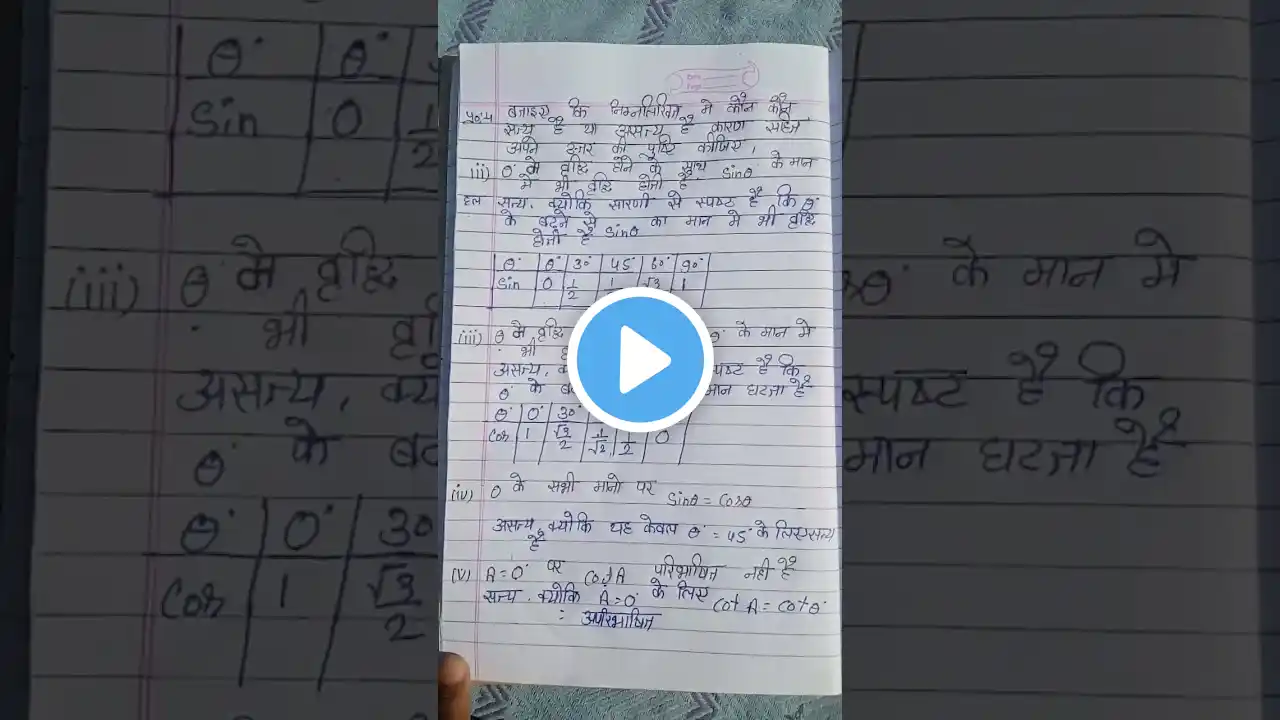 प्र०4 बताइए कि निम्नलिखित मे कौन कौन
सत्य है या असत्य है कारण सहित
अपने उत्तर की पुष्टि कीजिए,
ii) θ मे वृद्धि होने के साथ sinθ के मान
मे भी वृद्धि होती है
हल सत्य, क्योकि सारणी से स्पष्ट है कि θ
के बढ़ने से sinθ का मान मे भी वृद्धि
होती है
θ° 0° 30° 45° 60° 90°
Sin 0 1/2 1 √3 1
(iii) θ मे वृद्धि θ के मान मे
भी
असत्य, स्पष्ट है कि
θ के मान घटता है
θ° 0° 30°
Cos 1 √3/2 1/√2 1/2 0
(iv) θ के सभी मानो पर sinθ = cosθ
असत्य, क्योकि यह केवल θ° = 45° के लिए सत्य
है
(v) A = 0° पर cot A परिभाषित नही है
सत्य, क्योकि A = 0° के लिए cot A = cot 0°
= अपरिभाषित